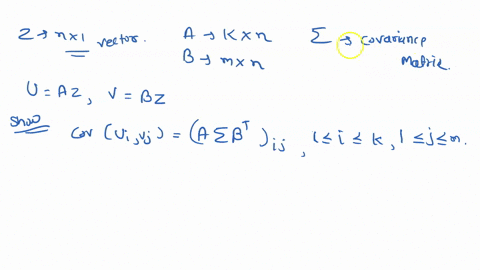 Z → n×1 vector. A → K×n Σ → covariance
B → m×n Matrix.
U = AZ, V = BZ
Show Cov (Ui, Vj) = (A Σ B^T)ij, 1 ≤ i ≤ k, 1 ≤ j ≤ m.